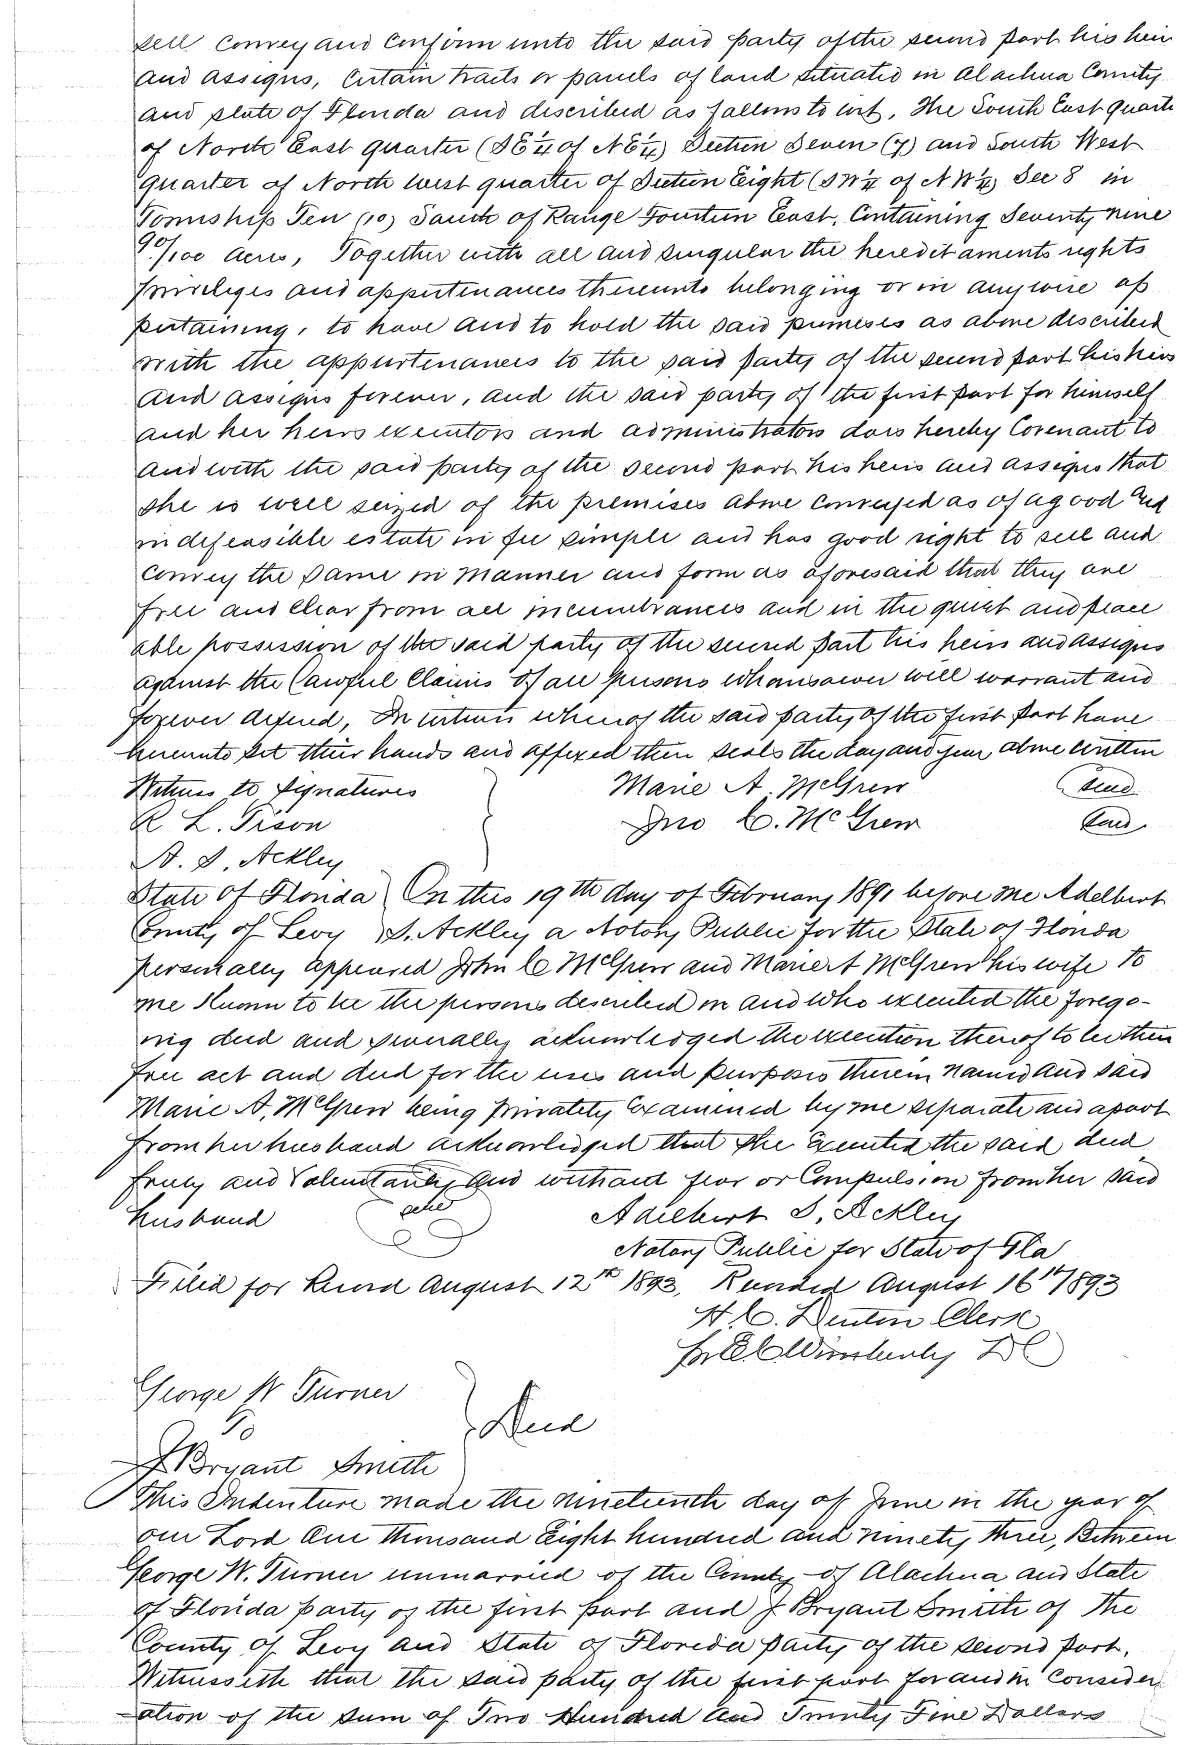 sell convey and confirm unto the said party of the second part his heir
and assigns, certain tracts or parcels of land situated in Alachua County
and state of Florida and described as follows to wit, The South East quarte
of North East quarter (SE¼ of NE¼) Section Seven (7) and South West
quarter of North west quarter of Section Eight (SW¼ of NW¼) Sec 8 in
Township Ten (10) South of Range Fourteen East, Containing Seventy nine
90/100 acres, Together with all and singular the hereditaments rights
privileges and appertenances thereunto belonging or in anywise ap
pertaining, to have and to hold the said premises as above described
with the appurtenances to the said party of the second part his heirs
and assigns forever, and the said party of the first part for himself
and her heirs executors and administrators does hereby Covenant to
and with the said party of the second part his heirs and assigns that
she is well seized of the premises above conveyed as of a good and
indefeasible estate in fee simple and has good right to sell and
convey the same in manner and form as aforesaid that they are
free and clear from all incumbrances and in the quiet and peace
able possession of the said party of the second part his heirs and assigns
against the lawful claims of all persons whomsoever will warrant and
forever defend, In witness whereof the said party of the first part have
hereunto set their hands and affixed their seals the day and year above written
Witness to signatures Marie A. McGrew Seal
R L. Tison Jno C. McGrew Seal
A. S. Ackley
State of Florida On this 19th day of February 1891 before me Adelbert
County of Levy S. Ackley a Notary Public for the State of Florida
personally appeared John C McGrew and Marie A McGrew his wife to
me known to be the persons described in and who executed the forego-
ing deed and severally acknowledged the execution thereof to be their
free act and deed for the uses and purposes therein named and said
Marie A, McGrew being privately examined by me separate and apart
from her husband acknowledged that she executed the said deed
freely and Voluntarily and without fear or Compulsion from her said
husband seal Adelbert S, Ackley
Notary Public for State of Fla
Filed for Record August 12th 1893, Recorded August 16th 1893
H. C. Denton Clerk
pr E C Wimberly DC
George W Turner
To
Deed
J Bryant Smith
This Indenture made the nineteenth day of June in the year of
our Lord One thousand Eight hundred and ninety three, Between
George W. Turner unmarried of the County of Alachua and State
of Florida party of the first part and J Bryant Smith of the
County of Levy and State of Florida party of the second part.
Witnesseth that the said party of the first part for and in consider
ation of the sum of Two Hundred and Twenty Five Dollars